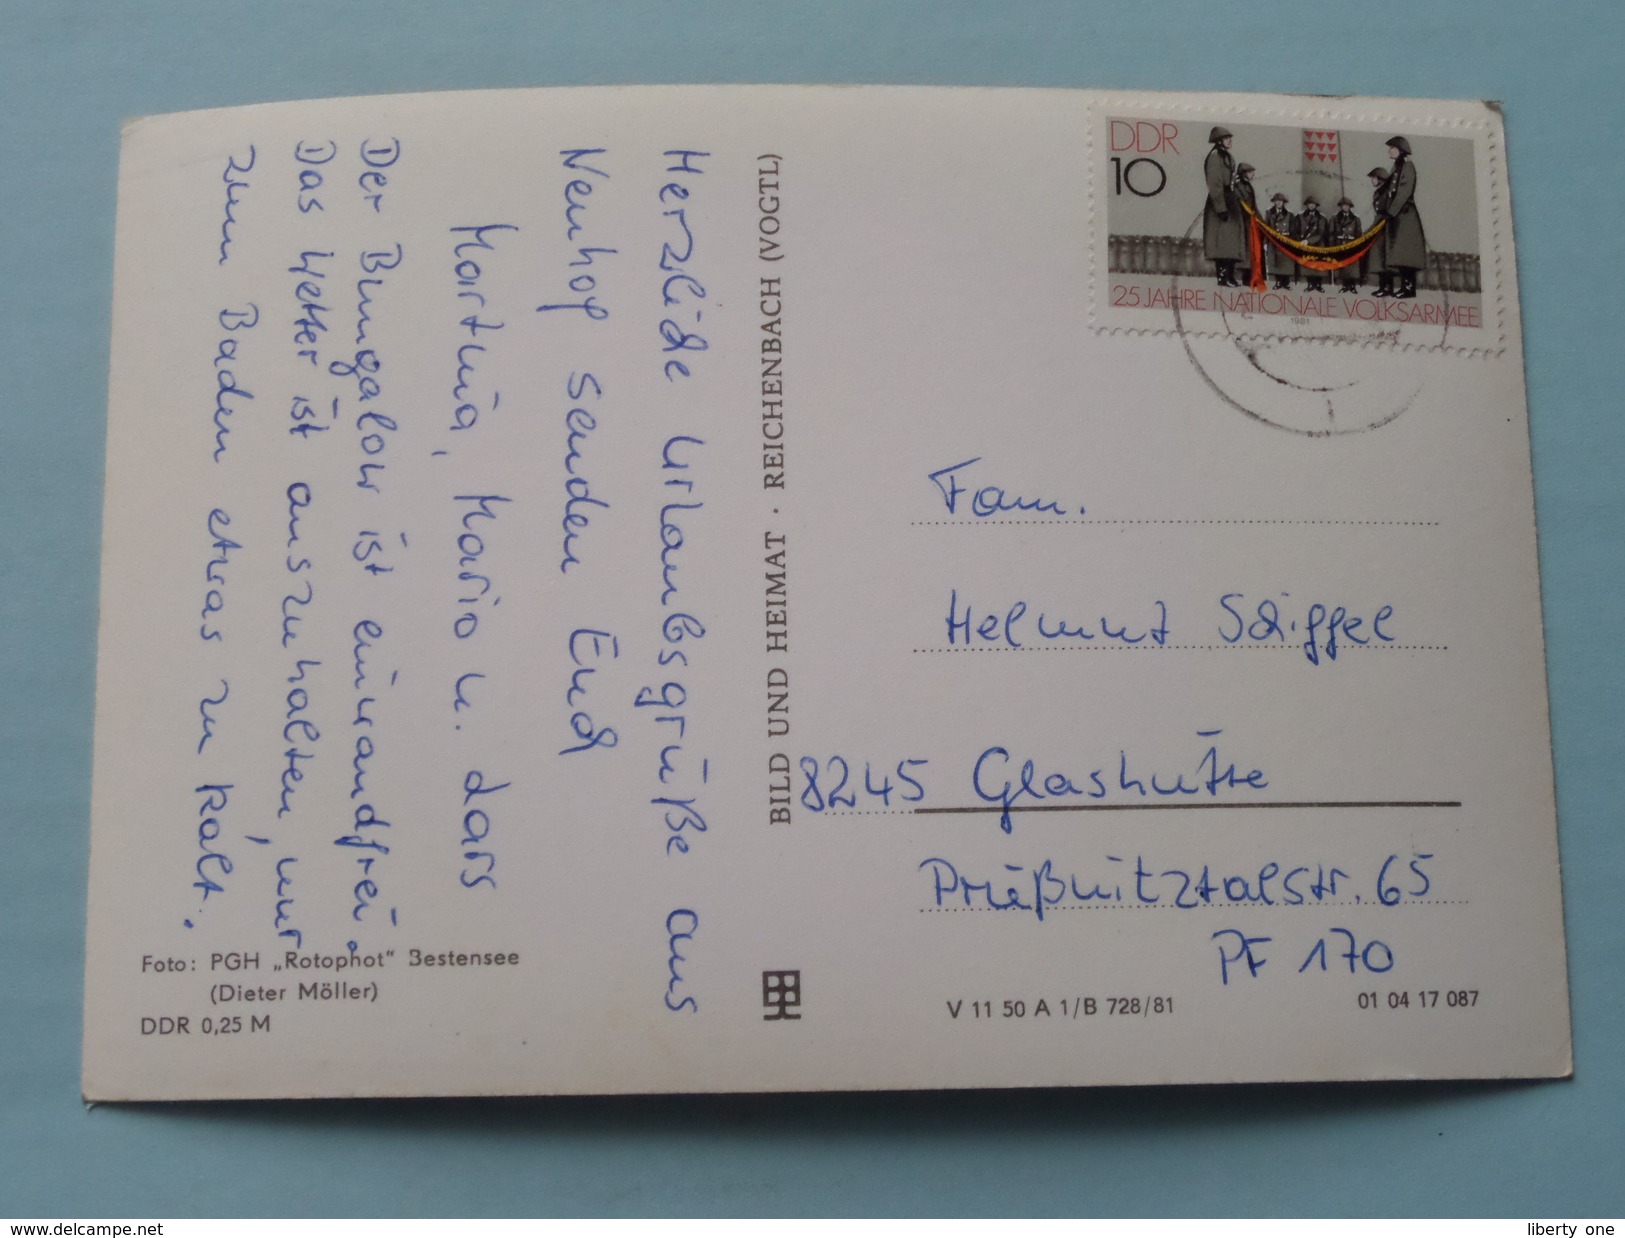 Herzliche Urlaubsgrüße aus
Neuhof senden Euch
Martina, Mario u. Lars
Der Bungalow ist einwandfrei.
Das Wetter ist auszuhalten, nur
zum Baden etwas zu kalt.
Foto: PGH „Rotophot“ Bestensee
(Dieter Möller)
DDR 0,25 M
BILD UND HEIMAT · REICHENBACH (VOGTL)
DDR
10
25 JAHRE NATIONALE VOLKSARMEE
1981
Fam.
Helmut Schiffel
8245 Glashütte
Prießnitztalstr. 65
PF 170
V 11 50 A 1/B 728/81
01 04 17 087
www.delcampe.net
liberty one